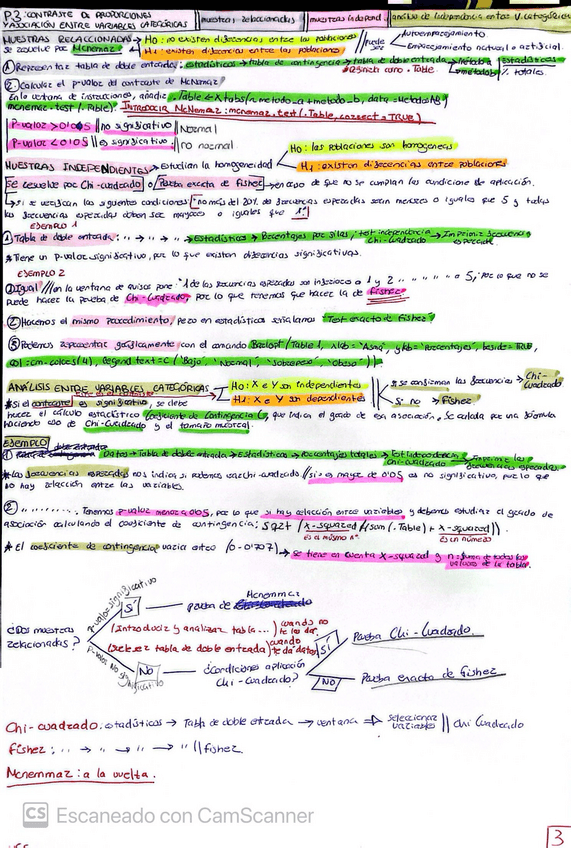 P3 CONTRASTE DE PROPORCIONES Y ASOCIACIÓN ENTRE VARIABLES CATEGÓRICAS || muestras relacionadas || muestras independ || análisis de independencia entre v. categóricas
MUESTRAS RELACIONADAS → Ho: no existen diferencias entre las poblaciones
se resuelve por McNemar → H1: existen diferencias entre las poblaciones || puede ser → Autoemparejamiento
→ Emparejamiento natural o artificial
① Representar tabla de doble entrada: estadísticos → tabla de contingencia → tabla de doble entrada
② Calcular el p-valor del contraste de McNemar
En la ventana de instrucciones, añadir .Table <- xtabs(~metodo_a+metodo_b, data=
mcnemar.test(.Table) Introducir McNemar: mcnemar.test(.Table, correct=TRUE)
P-valor > 0'05 || no significativo || Normal
P-valor < 0'05 || es significativo || no normal
Ho: las poblaciones son homogéneas
MUESTRAS INDEPENDIENTES → Estudian la homogeneidad
H1: existen diferencias entre poblaciones
Se resuelve por Chi-cuadrado o Prueba exacta de Fisher → en caso de que no se cumplan las condiciones de aplicación.
→ si se verifican las siguientes condiciones: no más del 20% de frecuencias esperadas sean menores o iguales que 5 y todas
las frecuencias esperadas deben ser mayores o iguales que 1.
EJEMPLO 1
① Tabla de doble entrada: '' → '' → '' → Estadísticos → Porcentajes por filas, test independencia Chi-cuadrado → Imprimir frecuencias esperadas
* Tiene un p-valor significativo, por lo que existen diferencias significativas.
EJEMPLO 2
① Igual // en la ventana de avisos pone: "1 de las frecuencias esperadas son inferiores a 1 y 2 '' '' '' '' a 5", por lo que no se
puede hacer la prueba de Chi-cuadrado, por lo que tenemos que hacer la de Fisher
② Hacemos el mismo procedimiento, pero en estadísticos señalamos "Test exacto de Fisher"
③ Podemos representar gráficamente con el comando Barplot(Table1, xlab="Asma", ylab="Porcentajes", beside=TRUE,
col=cm.colors(4), legend.text=c("Bajo", "Normal", "Sobrepeso", "Obeso"))
ANÁLISIS ENTRE VARIABLES CATEGÓRICAS
Ho: X e Y son independientes
H1: X e Y son dependientes
* se confirman las frecuencias → Chi-cuadrado
Si no → Fisher
* Si el contraste es significativo, se debe
hacer el cálculo estadístico Coeficiente de Contingencia C, que indica el grado de esa asociación. Se calcula por una fórmula
haciendo uso de Chi-cuadrado y el tamaño muestral.
EJEMPLO
① Datos → tabla de doble entrada → Estadísticos → Porcentajes totales → Test independencia Chi-cuadrado → Imprimir las frecuencias esperadas.
* Las frecuencias esperadas nos indica si podemos usar chi-cuadrado // si es mayor de 0'05 es no significativo, por lo que
no hay relación entre las variables.
② '' '' '' '' '' Tenemos p-valor menor a 0'05, por lo que sí hay relación entre variables y debemos estudiar el grado de
asociación calculando el coeficiente de contingencia: sqrt (x-squared / (sum(.Table) + x-squared)).
es el mismo nº es un número
* El coeficiente de contingencia varía entre (0 - 0'707) → se tiene en cuenta X-squared y n: suma de todos los valores de la tabla.
p-valor significativo
SÍ → prueba de McNemar
¿Dos muestras relacionadas?
(Introducir y analizar tabla...) cuando no te las dan
(Leer tabla de doble entrada) cuando te da datos
P-valor No significativo
No → ¿Condiciones aplicación Chi-cuadrado?
SÍ → Prueba Chi-Cuadrado.
NO → Prueba exacta de Fisher
Chi-cuadrado: estadísticos → Tabla de doble entrada → ventana → seleccionar variables || chi cuadrado
Fisher: '' → '' → '' → '' || fisher.
McNemmar: a la vuelta.
CS Escaneado con CamScanner
3